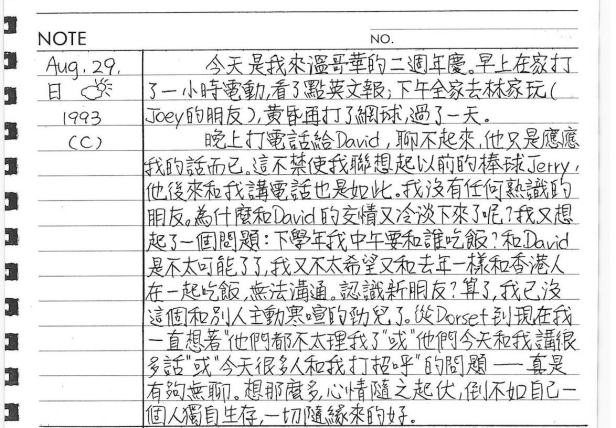 NOTE NO.
Aug. 29. 今天是我來溫哥華的二週年慶。早上在家打
日 了一小時電動,看了點英文報;下午全家去林家玩(
1993 Joey的朋友),黃昏再打了網球,過了一天。
(C) 晚上打電話給David,聊不起來,他只是應應
我的話而已。這不禁使我聯想起以前的棒球Jerry,
他後來和我講電話也是如此。我沒有任何熟識的
朋友。為什麼和David的交情又冷淡下來了呢?我又想
起了一個問題:下學年我中午要和誰吃飯?和David
是不太可能了了,我又不太希望又和去年一樣和香港人
在一起吃飯,無法溝通。認識新朋友?算了,我已沒
這個和別人主動寒喧的勁兒了。從Dorset到現在我
一直想著"他們都不太理我了"或"他們今天和我講很
多話"或"今天很多人和我打招呼"的問題——真是
有夠無聊。想那麼多,心情隨之起伏,倒不如自己一
個人獨自生存,一切隨緣來的好。